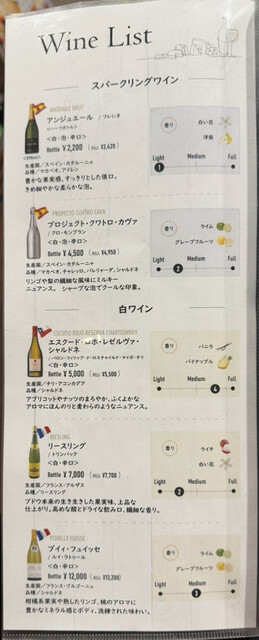 Wine List
スパークリングワイン
ANGE BRUT
アンジュエール / フレシネ
<白・泡・辛口>
Bottle ¥2,200 (税込 ¥2,420)
生産国/スペイン・カタルーニャ
品種/マカベオ、アイレン
豊かな果実感、すっきりとした後口。
きめ細やかな柔らかな泡。
香り
白い花
洋梨
Light Medium Full
1
PROYECTO CUATRO CAVA
プロジェクト・クワトロ・カヴァ
/ クロ・モンブラン
<白・泡・辛口>
Bottle ¥4,500 (税込 ¥4,950)
生産国/スペイン・カタルーニャ
品種/マカベオ、チャレッロ、パレリャーダ、シャルドネ
リンゴや梨の繊細な風味にミルキー
ニュアンス。 シャープな泡でクールな印象。
香り
ライム
グレープフルーツ
Light Medium Full
2
白ワイン
ESCUDO ROJO RESERVA CHARDONNAY
エスクード・ロホ・レゼルヴァ・
シャルドネ
/ バロン・フィリップ・ド・ロスチャイルド・マイポ・チリ
<白・辛口>
Bottle ¥5,000 (税込 ¥5,500)
生産国/チリ・アコンカグア
品種/シャルドネ
アプリコットやナッツのまろやか、ふくよかな
アロマにほんのりと麦わらのようなニュアンス。
香り
バニラ
パイナップル
Light Medium Full
4
RIESLING
リースリング
/ トリンバック
<白・辛口>
Bottle ¥7,000 (税込 ¥7,700)
生産国/フランス・アルザス
品種/リースリング
ブドウ本来の生き生きした果実味、上品な
仕上がり。高めな酸とドライな飲み口、繊細な香り。
香り
ライチ
白い花
Light Medium Full
2
POUILLY FUISSE
プイィ・フュイッセ
/ ルイ・ラトゥール
<白・辛口>
Bottle ¥12,000 (税込 ¥13,200)
生産国/フランス・ブルゴーニュ
品種/シャルドネ
柑橘系果実や熟したリンゴ、桃のアロマに
豊かなミネラル感とボディ。洗練された味わい。
香り
ライム
グレープフルーツ
Light Medium Full
3